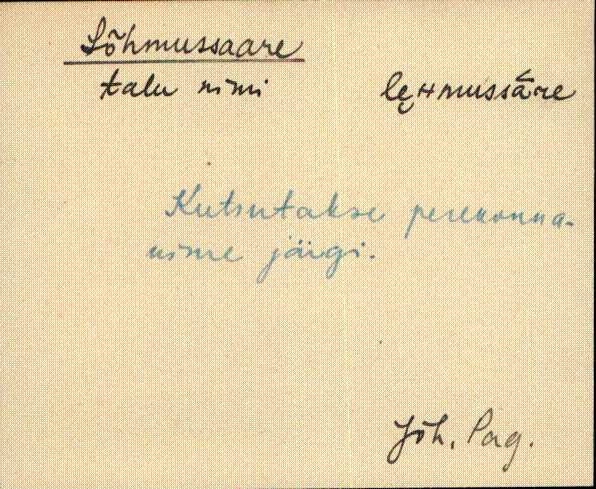 Lõhmussaare
talu nimi le̮ʜmussāre
Kutsutakse perekonna-
nime järgi.
Jõh. Pag.